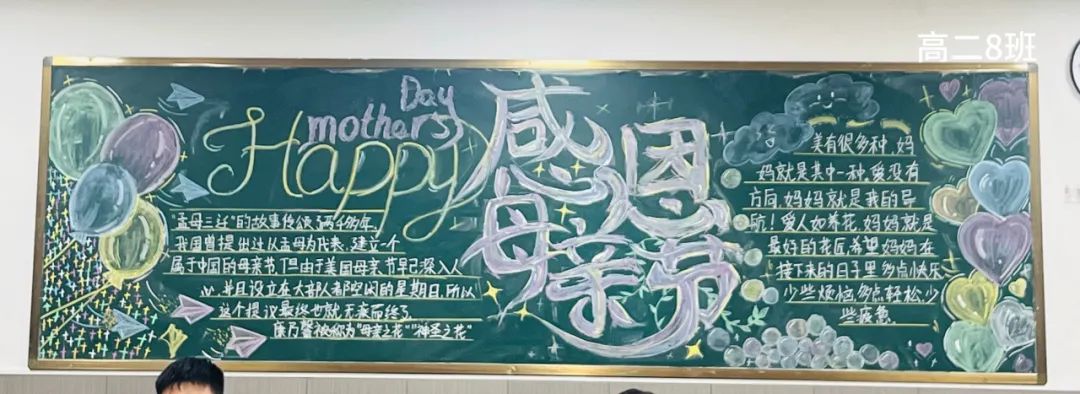 高二8班
Happy
mothers
Day
感恩
母亲节
"孟母三迁"的故事传颂了两千多年,
我国曾提出过以孟母为代表,建立一个
属于中国的母亲节,但由于美国母亲节早已深入人
心,并且设立在大部人都空闲的星期日,所以
这个提议最终也就无疾而终了.
康乃馨被称为"母亲之花""神圣之花"
美有很多种,妈
妈就是其中一种,爱没有
方向,妈妈就是我的导
航!爱人如养花,妈妈就是
最好的花匠,希望妈妈在
接下来的日子里多点快乐
少些烦恼,多点轻松,少
些疲惫.